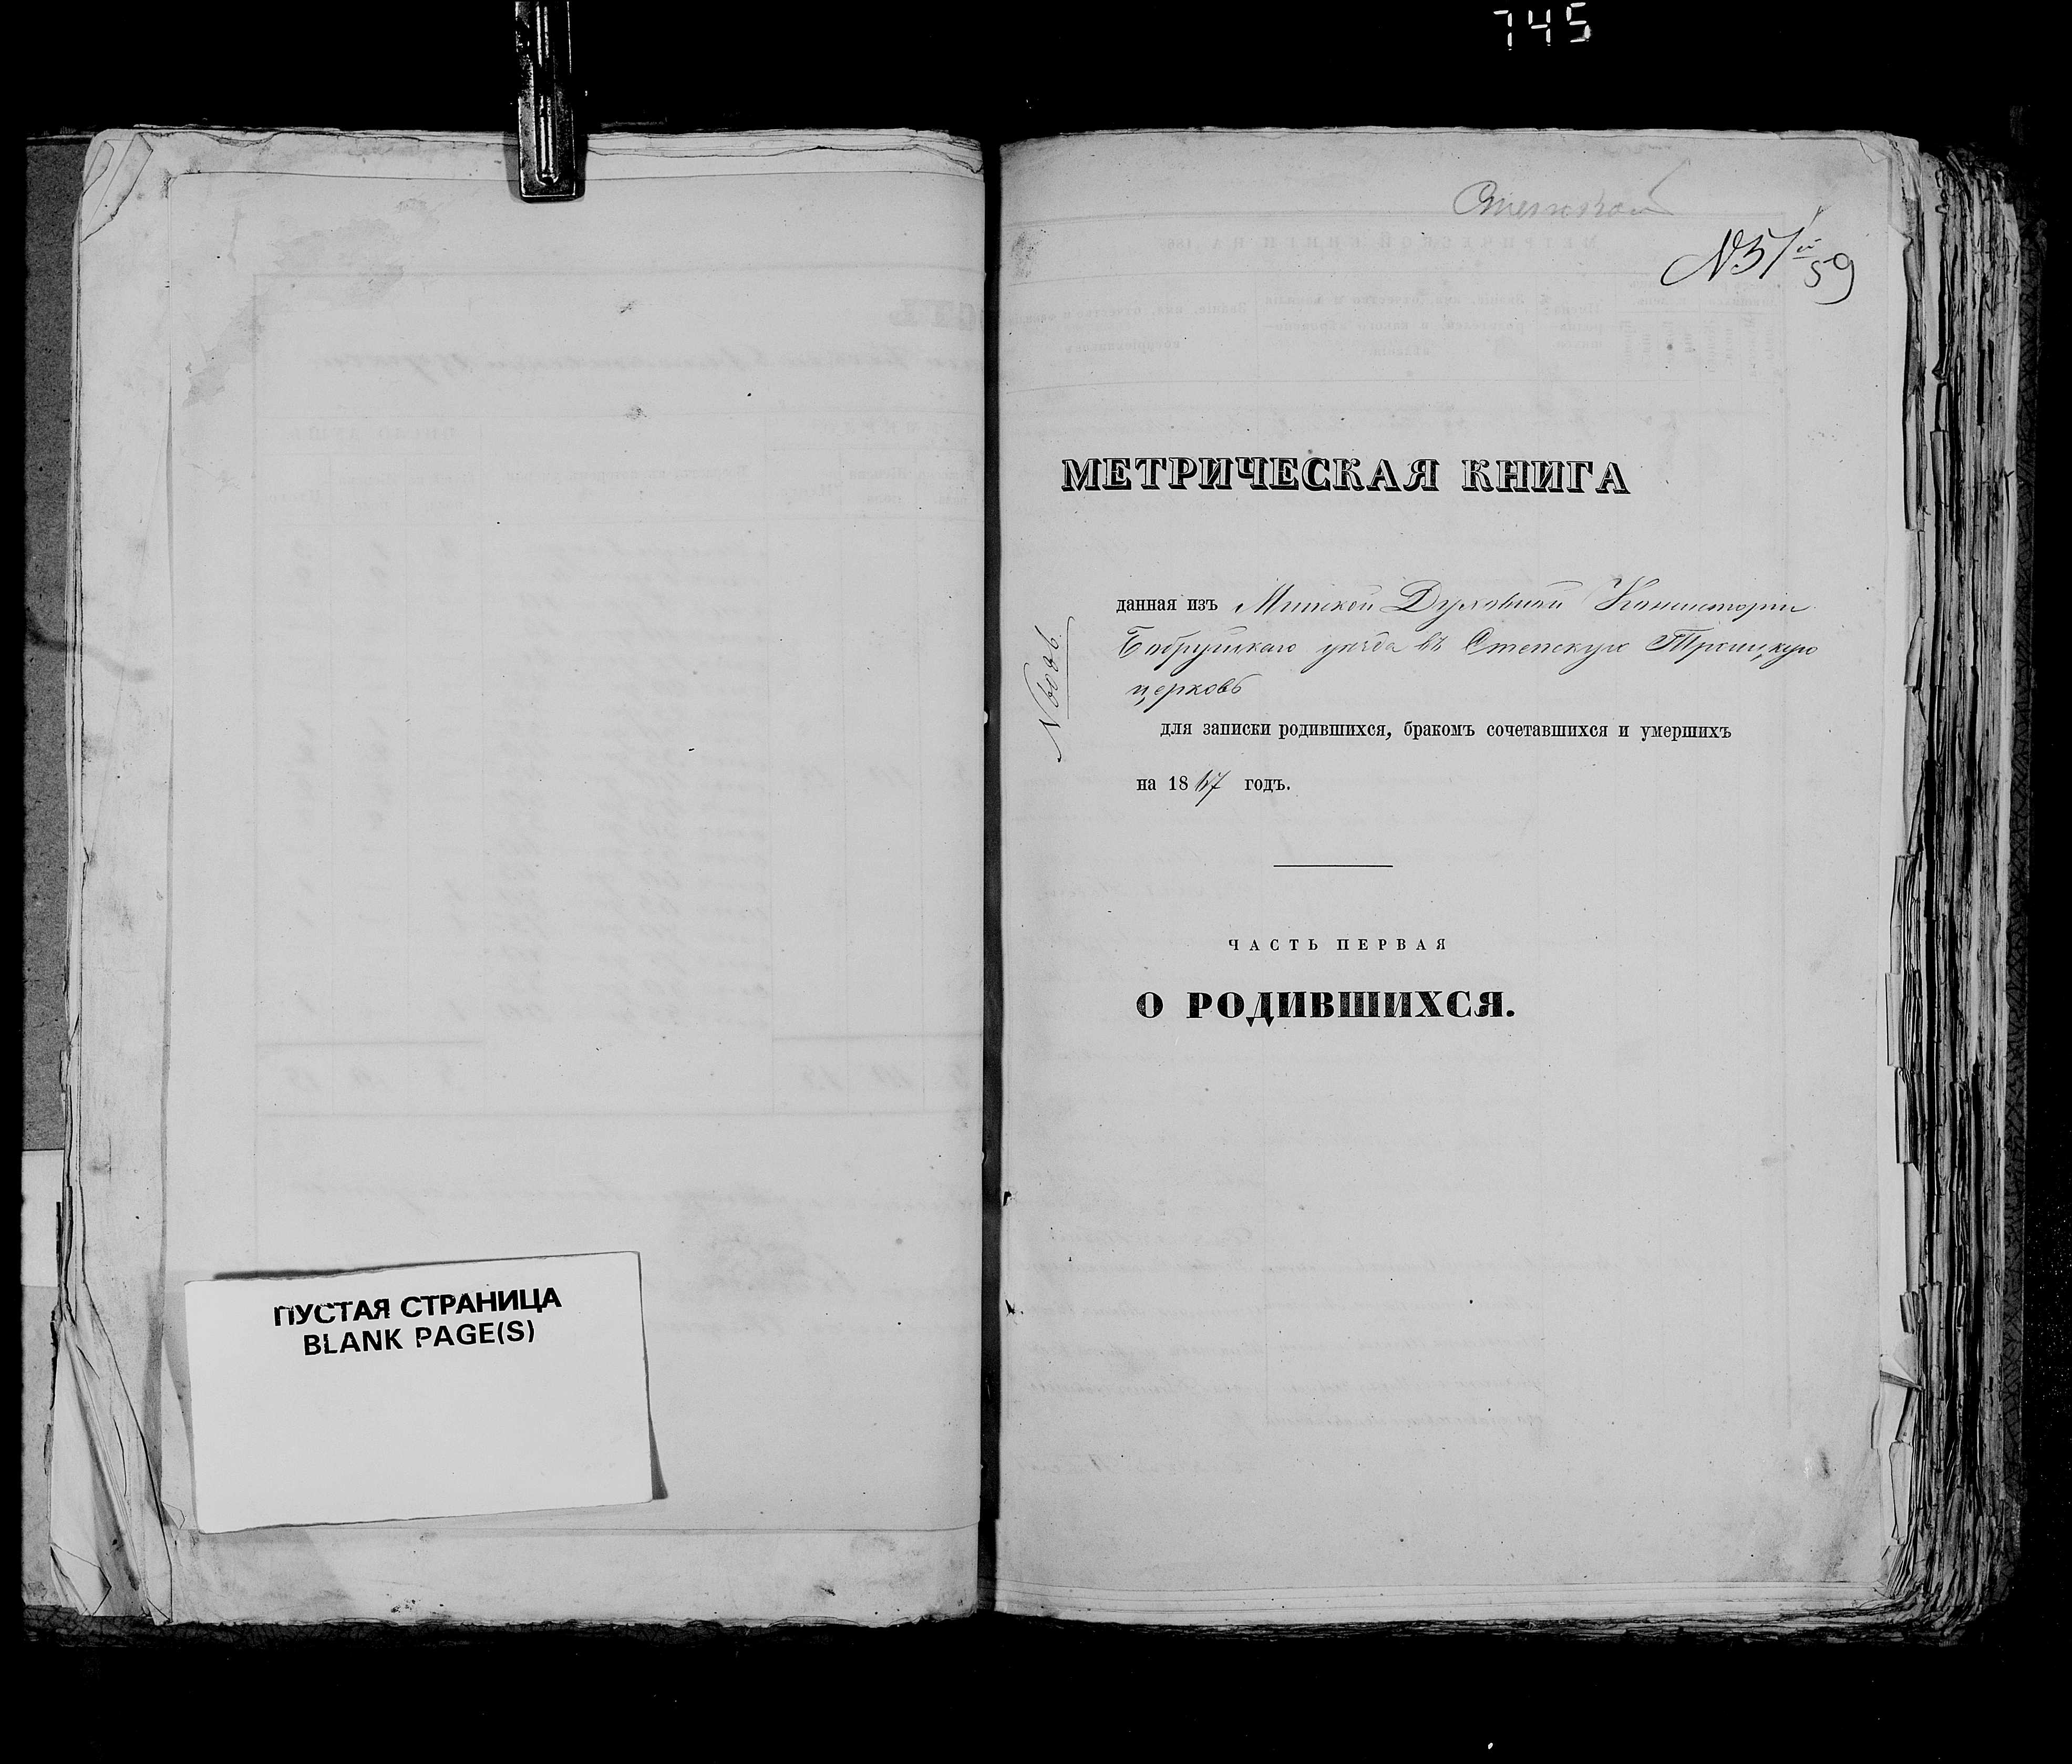 745
Степской
№ 51й
59
МЕТРИЧЕСКАЯ КНИГА
данная изъ Минской Духовной Консисторіи
Бобруйскаго уѣзда въ Степскую Троицкую
церковь
для записки родившихся, бракомъ сочетавшихся и умершихъ
на 1867 годъ.
ЧАСТЬ ПЕРВАЯ
О РОДИВШИХСЯ.
ПУСТАЯ СТРАНИЦА
BLANK PAGE(S)